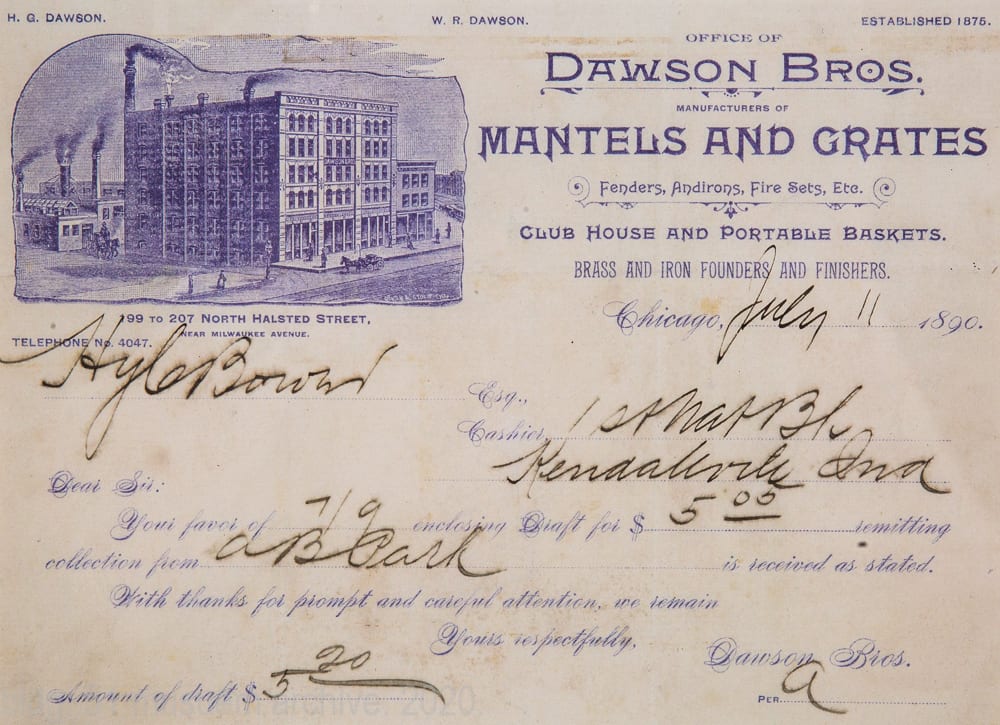 H. G. DAWSON. W. R. DAWSON. ESTABLISHED 1875.
OFFICE OF
DAWSON BROS.
MANUFACTURERS OF
MANTELS AND GRATES
Fenders, Andirons, Fire Sets, Etc.
CLUB HOUSE AND PORTABLE BASKETS.
BRASS AND IRON FOUNDERS AND FINISHERS.
DAWSON BROS
199 TO 207 NORTH HALSTED STREET,
NEAR MILWAUKEE AVENUE.
TELEPHONE No. 4047.
Chicago, July 11 1890.
Esq.,
Cashier, 1st Nat Bk
Kendallville Ind
Dear Sir:
Your favor of 7/9 enclosing Draft for $ 5 00 remitting
collection from A B Park is received as stated.
With thanks for prompt and careful attention, we remain
Yours respectfully,
Dawson Bros.
Amount of draft $ 5 20
PER A
archive, 2020